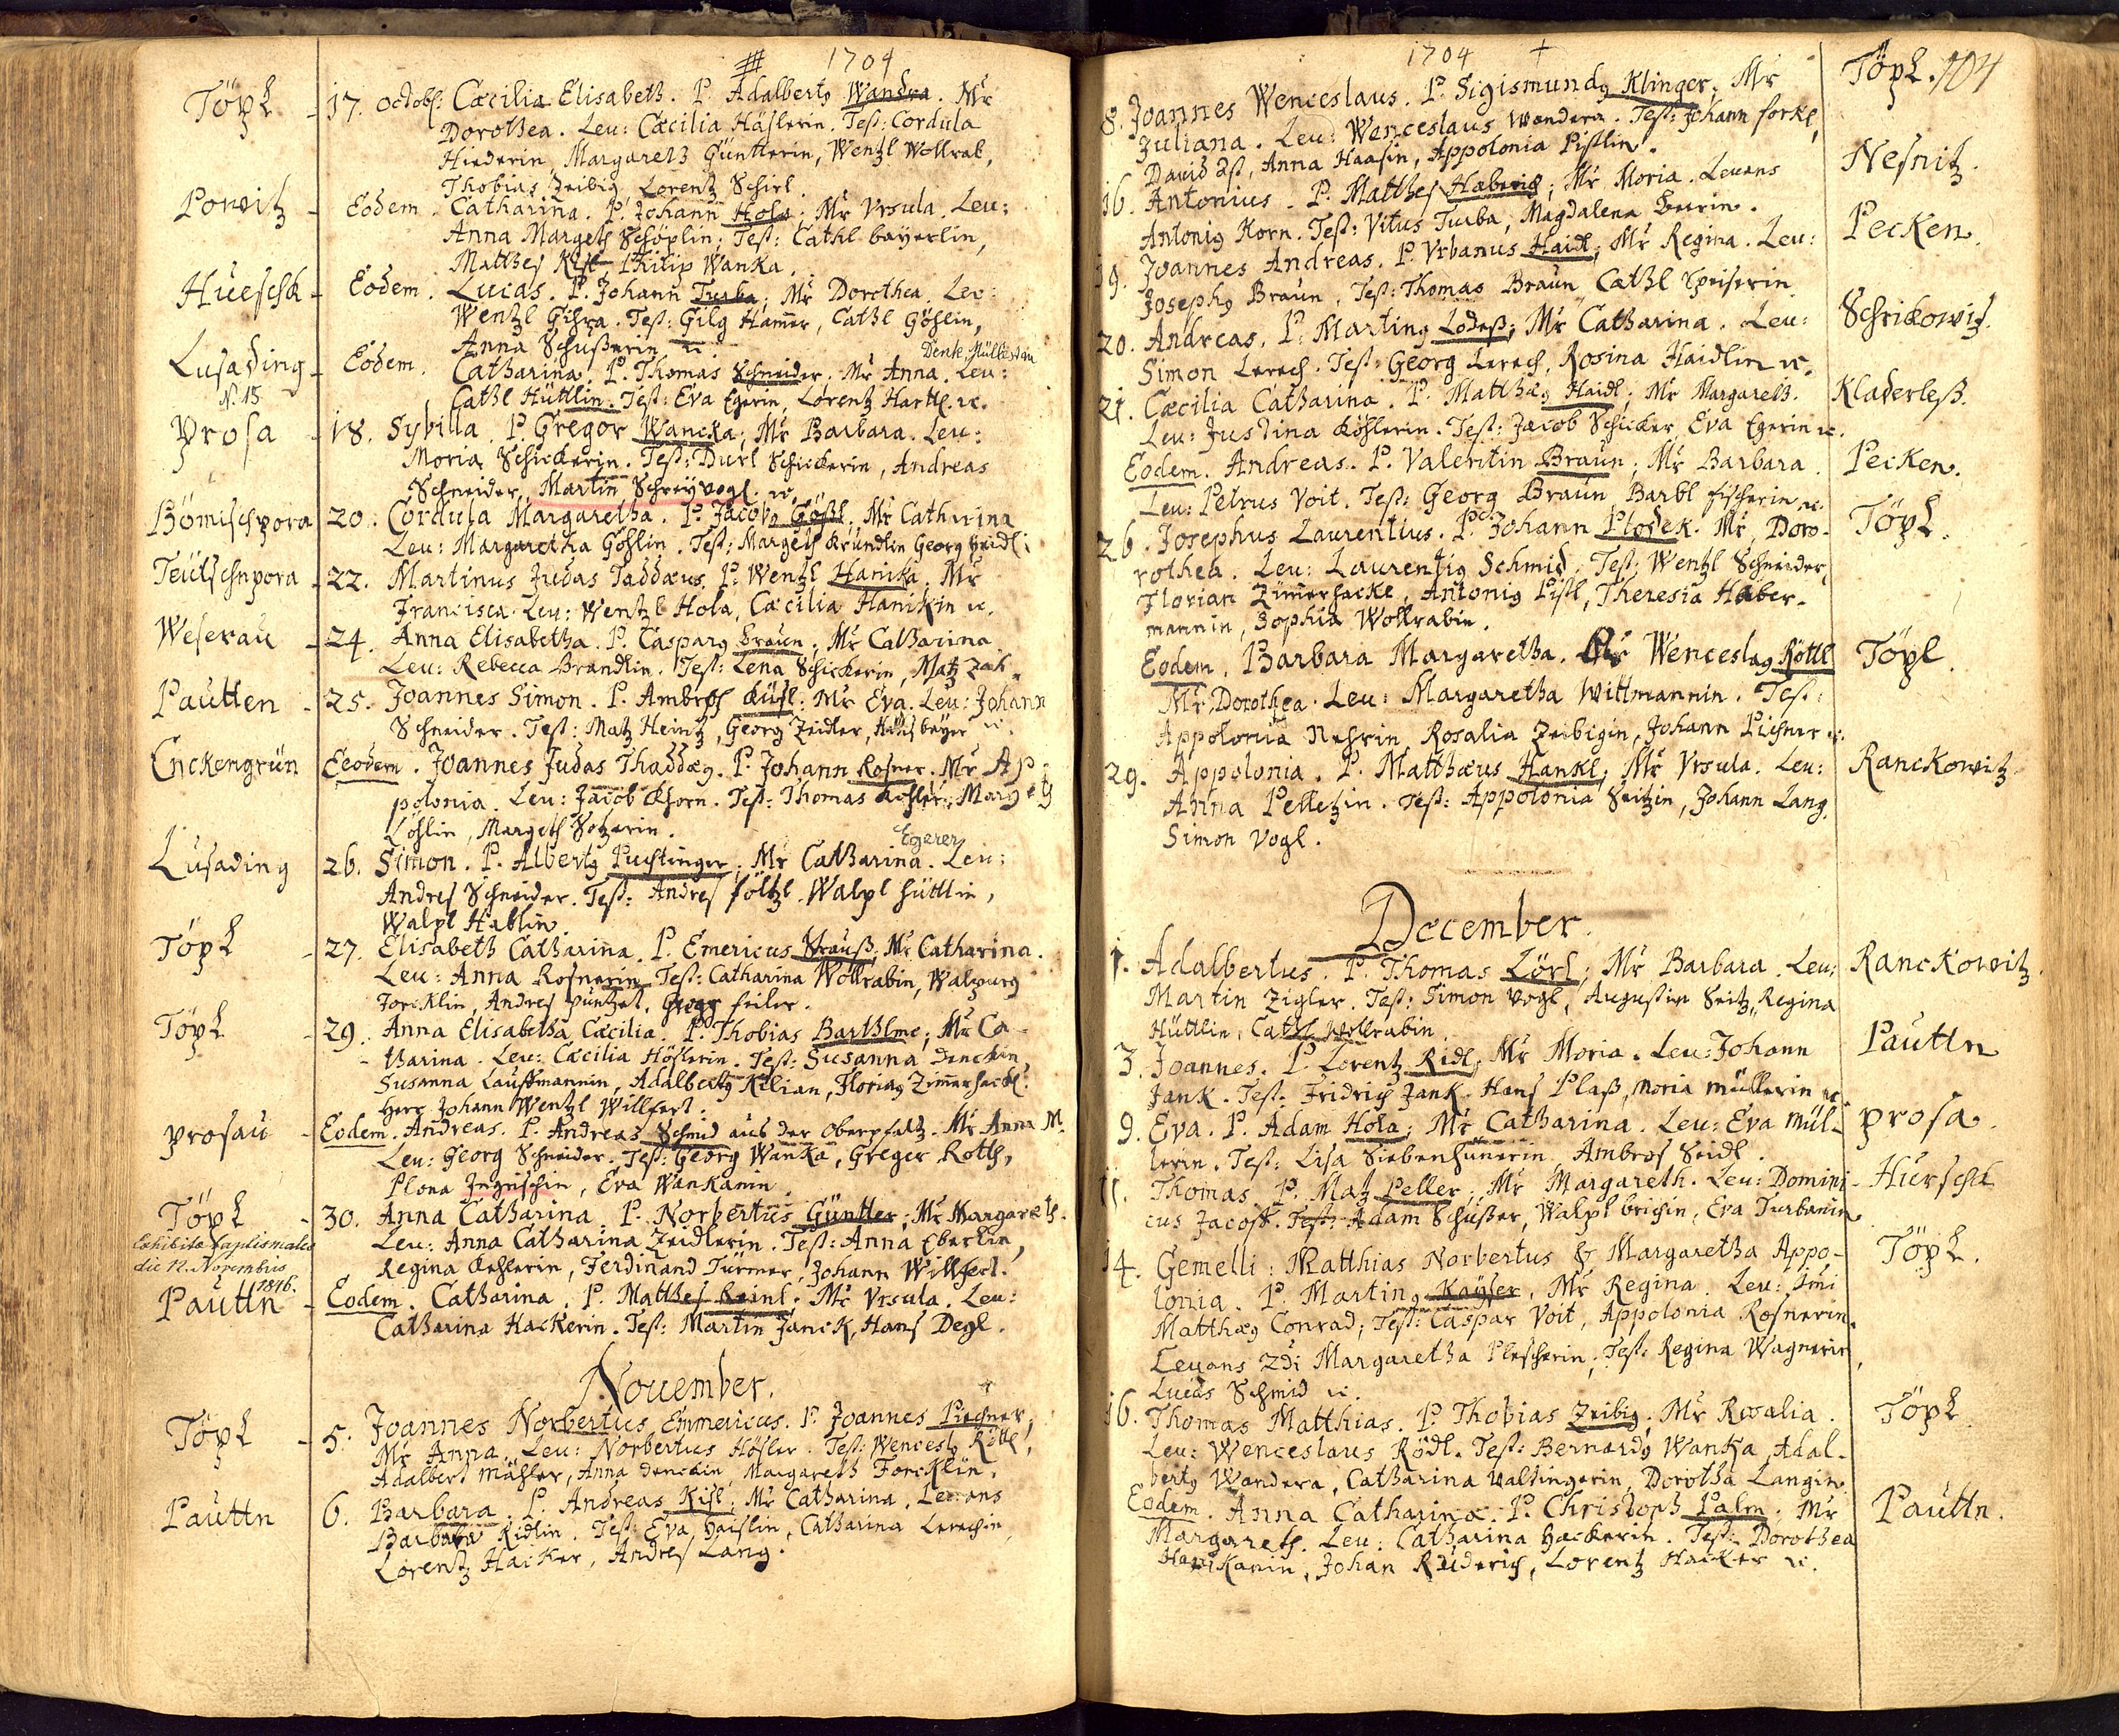 1704
Töpl - 17. Octobr: Cæcilia Elisabeth. P. Adalberty Wandra. Mr
Dorothea. Leu: Cæcilia Häslerin. Test: Cordula
Hiederin, Margareth Güntterin, Wentzl Wollrab,
Thobias Zeibig, Lorentz Schirl.
Powitz - Eodem. Catharina. P. Johann Hola; Mr Vrsula. Leu:
Anna Margeth Schöplin; Test: Cathl bayerlin,
Matthes, Philip Wanka.
Hüeschk - Eodem. Lucas. P. Johann Turba; Mr Dorothea. Leu:
Wentzl Gihra. Test: Gilg Hamer, Cathl Göhlin,
Anna Schusserin ꝛc.
Lusading - Eodem. Catharina. P. Thomas Schneider. Mr Anna. Leu:
N. 15
Cathl Hüttlin. Test: Eva Egerin, Lorentz Hartl. ꝛc.
Prosa - 18. Sybilla. P. Gregor Wancka; Mr Barbara. Leu:
Moria Schickerin. Test: Durl Schickerin, Andreas
Schneider, Martin Schreyvogl. ꝛc.
Bömischpora 20. Cordula Margaretha. P. Jacoby Gößl. Mr Catharina
Leu: Margaretha Göhlin. Test: Margeth Kründlin Georg
Teütschnpora - 22. Martinus Judas Taddæus. P. Wentzl Hanika. Mr
Francisca. Leu: Wentzl Hola, Cæcilia Hanikin ꝛc.
Weserau - 24. Anna Elisabetha. P. Caspary Braun; Mr Catharina.
Leu: Rebecca Brandlin. Test: Lena Schickerin, Matz Zak.
Pautten - 25. Joannes Simon. P. Ambros Küsl: Mr Eva. Leu: Johann
Schneider. Test: Matz Heintz, Georg Zeidler, Hans bayer ꝛc.
Enckengrün Eodem. Joannes Judas Thaddæy. P. Johann Rosner. Mr Ap-
polonia. Leu: Jacob Khorn. Test: Thomas Köhler, Margeth
Löhlin, Margeth Sotzerin.
Egerer
Lusading 26. Simon. P. Alberty Puchtinger; Mr Catharina. Leu:
Andres Schneider. Test: Andres Höltzl. Walpl Hüttlin,
Walpl Hablin.
Töpl - 27. Elisabeth Catharina. P. Emericus Strauß; Mr Catharina.
Leu: Anna Rosnerin. Test: Catharina Wollrabin, Walpurg
Forcklin, Andres Püntzel, Georg Feiler.
Töpl - 29. Anna Elisabetha Cæcilia. P. Thobias Barthlme; Mr Ca-
tharina. Leu: Cæcilia Höslerin. Test: Susanna Denckin,
Susanna Lauffmannin, Adalberty Kilian, Floriany Zimerhackl.
Herr Johann Wentzl Willfert.
Prosau - Eodem. Andreas. P. Andreas Schmid aus der Oberpfaltz. Mr Anna M.
Leu: Georg Schneider. Test: Georg Wanka, Greger Rotth,
Plona, Eva Wankanin.
Töpl - 30. Anna Catharina. P. Norbertus Güntter; Mr Margareth.
Exhibita Baptismales
die 12. Novembris
1846.
Leu: Anna Catharina Zeidlerin. Test: Anna Eberlin,
Regina Kehlerin, Ferdinand Türmer, Johann Willfert.
Pauttn - Eodem. Catharina. P. Matthes; Mr Vrsula. Leu:
Catharina Hackerin. Test: Martin Janck, Hans Degl.
November.
Töpl - 5. Joannes Norbertus Emmericus. P. Joannes Piechner;
Mr Anna. Leu: Norbertus Hösler. Test: Wencesly Röttl,
Adalbert Mähler, Anna Denckin, Margareth Forcklin.
Pauttn 6. Barbara. P. Andreas Kisl; Mr Catharina. Leuans
Barbara Ridlin. Test: Eva Haislin, Catharina Lerechin,
Lorentz Hacker, Andres Lang.
1704
104
8. Joannes Wenceslaus. P. Sigismundy Klinger, Mr Töpl.
Juliana. Leu: Wenceslaus Wandera. Test: Johann Forkl,
David, Anna Haasin, Appolonia Pistlin.
16. Antonius. P. Matthes Haberich; Mr Moria. Leuans Nesnitz.
Antoniy Korn. Test: Vitus Turba, Magdalena.
19. Joannes Andreas. P. Vrbanus Haidl; Mr Regina. Leu: Pecken.
Josephy Braun. Test: Thomas Braun, Cathl Speiserin.
20. Andreas. P. Martiny Lodeß; Mr Catharina. Leu: Schrikowitz.
Simon Lerech. Test: Georg Lerech, Rosina Haidlin ꝛc.
21. Cæcilia Catharina. P. Matthæy Haidl; Mr Margareth. Kladerleß.
Leu: Justina Köhlerin. Test: Jacob Schicker, Eva Egerin ꝛc.
Eodem. Andreas. P. Valentin Braun; Mr Barbara. Pecken.
Leu: Petrus Voit. Test: Georg Braun, Barbl Fischerin ꝛc.
26. Josephus Laurentius. P. Johann Plodek. Mr Doro- Töpl.
rothea. Leu: Laurentiy Schmid. Test: Wentzl Schneider,
Florian Zimerhackl, Antoniy Pistl, Theresia Haber-
mannin, Sophia Wollrabin.
Eodem. Barbara Margaretha. Wenceslay Röttl Töpl.
Mr Dorothea. Leu: Margaretha Wittmannin. Test:
Appolonia Nehrin, Rosalia Zeibigin, Johann Pichner ꝛc.
29. Appolonia. P. Matthæus Hankl; Mr Vrsula. Leu: Ranckowitz
Anna Pelletzin. Test: Appolonia Seitzin, Johann Lang,
Simon Vogl.
December.
1. Adalbertus. P. Thomas Lörl; Mr Barbara. Leu: Ranckowitz.
Martin Zigler. Test: Simon Vogl, Augustin Seitz, Regina
Hüttlin, Cathl Wollrabin.
3. Joannes. P. Lorentz Ridl, Mr Moria. Leu: Johann Pauttn
Jank. Test: Fridrich Jank, Hans Plaß, Moria Müllerin ꝛc.
9. Eva. P. Adam Hola; Mr Catharina. Leu: Eva Mül- Prosa.
lerin. Test: Lisa Siebenhünerin, Ambros Seidl.
11. Thomas. P. Matz Peller; Mr Margareth. Leu: Domini- Hürschk
cus Jacost. Test: Adam Schußer, Walpl brichin, Eva Turbanin.
14. Gemelli: Matthias Norbertus & Margaretha Appo- Töpl.
lonia. P. Martiny Kayser, Mr Regina. Leu: 1mi
Matthæy Conrad; Test: Caspar Voit, Appolonia Rosnerin.
Leuans 2di Margaretha Plescherin; Test: Regina Wagnerin,
Lucas Schmid ꝛc.
16. Thomas Matthias. P. Thobias Zeibig; Mr Rosalia. Töpl
Leu: Wenceslaus Rödl. Test: Bernardy Wanka, Adal-
berty Wandera, Catharina Waltingerin, Dorotha Langin.
Eodem. Anna Catharina. P. Christoph Palm; Mr Pauttn.
Margareth. Leu: Catharina Hackerin. Test: Dorothea
Hanikanin, Johan Rüderich, Lorentz Hacker ꝛc.